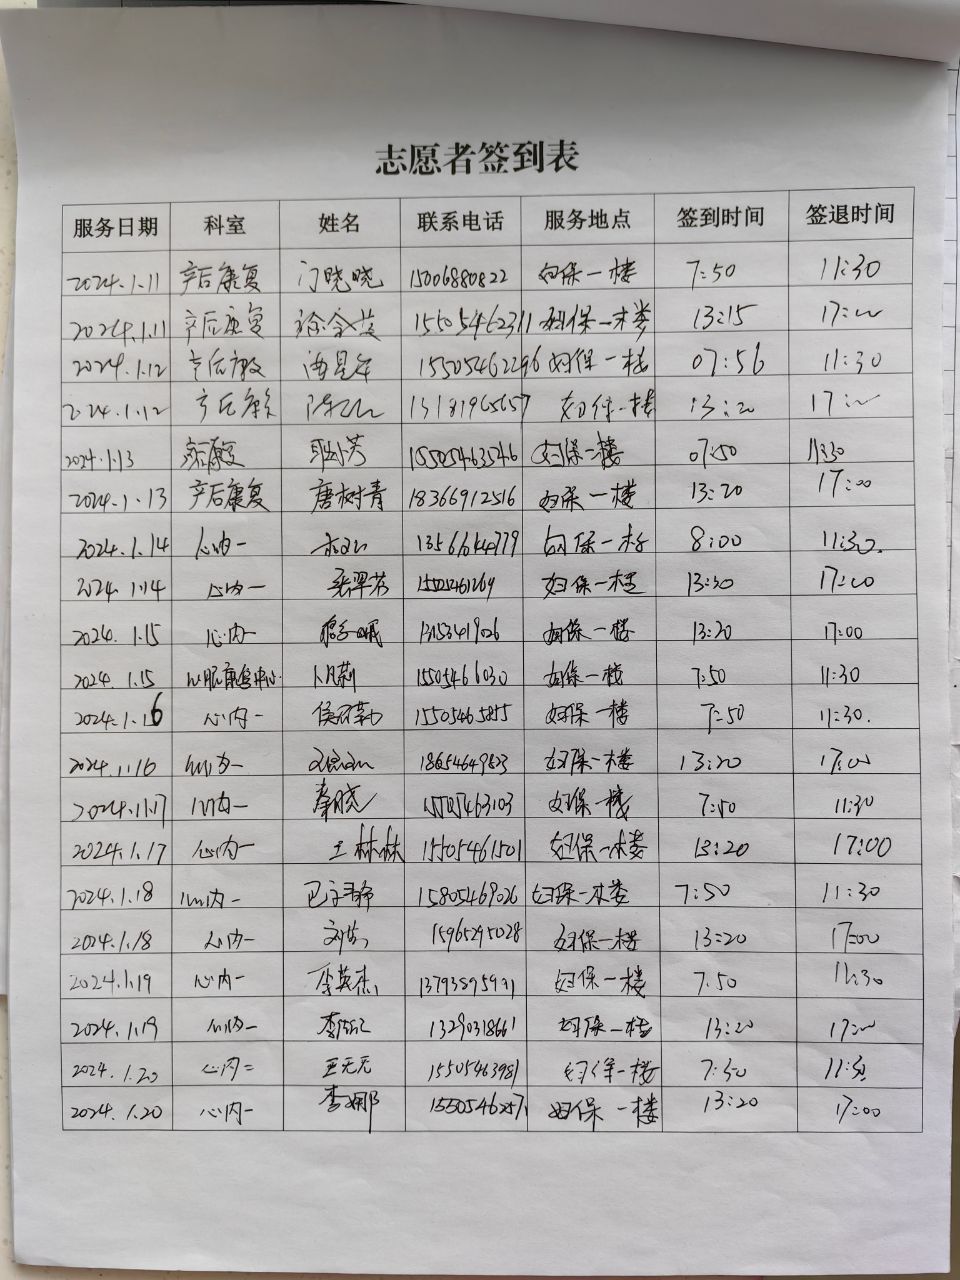 志愿者签到表
服务日期 科室 姓名 联系电话 服务地点 签到时间 签退时间
2024.1.11 产后康复 门晓晓 15006880822 妇保一楼 7:50 11:30
2024.1.11 产后康复 15505462311 妇保一楼 13:15 17:00
2024.1.12 产后康复 15505462296 妇保一楼 07:56 11:30
2024.1.12 产后康复 13181965657 妇保一楼 13:20 17:00
2024.1.13 产后康复 耿小芳 15505463546 妇保一楼 07:50 11:30
2024.1.13 产后康复 唐树青 18366912516 妇保一楼 13:20 17:00
2024.1.14 心内一 妇保一楼 8:00 11:30.
2024.1.14 心内一 张翠芬 妇保一楼 13:30 17:00
2024.1.15 心内一 妇保一楼 13:20 17:00
2024.1.15 心脏康复中心 卜凡莉 15505466030 妇保一楼 7:50 11:30
2024.1.16 心内一 15505465855 妇保一楼 7:50 11:30.
2024.1.16 心内一 18654649823 妇保一楼 13:20 17:00
2024.1.17 心内一 秦晓 15505463103 妇保一楼 7:50 11:30
2024.1.17 心内一 王林林 15505461501 妇保一楼 13:20 17:00
2024.1.18 心内一 15805469026 妇保一楼 7:50 11:30
2024.1.18 心内一 15965295028 妇保一楼 13:20 17:00
2024.1.19 心内一 李英杰 妇保一楼 7:50 11:30
2024.1.19 心内一 13290318661 妇保一楼 13:20 17:00
2024.1.20 心内二 王天天 15505463981 妇保一楼 7:50 11:30
2024.1.20 心内一 李娜 15505462571 妇保一楼 13:20 17:00